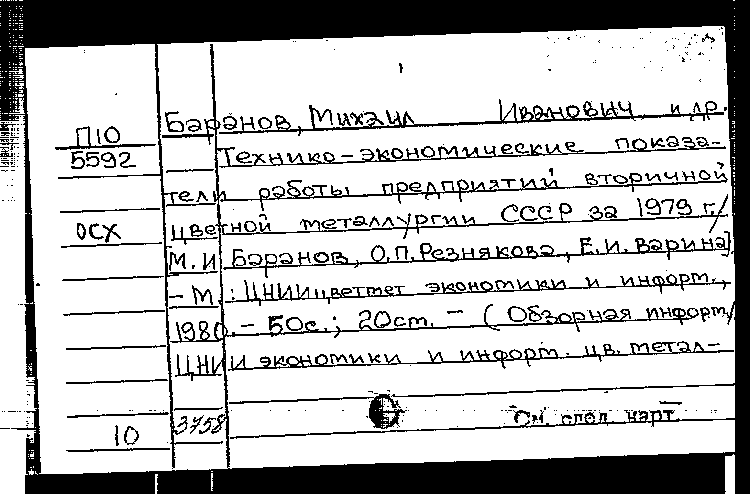 П10
5592
ОСХ
Баранов, Михаил Иванович и др.
Технико-экономические показа-
тели работы предприятий вторичной
цветной металлургии СССР за 1979 г./
[М.И. Баранов, О.П. Резнякова, Е.И. Варина].
- М.: ЦНИИцветмет экономики и информ.,
1980. - 50с.; 20см. - (Обзорная информ./
ЦНИИ экономики и информ. цв. метал-
10
3758
См. след. карт.